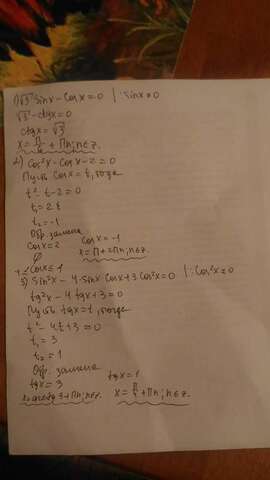 1) √3 sinx - cosx = 0 | : sinx ≠ 0
√3 - ctgx = 0
ctgx = √3
x = π/6 + πn; n∈z.
2) cos²x - cosx - 2 = 0
Пусть cosx = t, тогда
t² - t - 2 = 0
t₁ = 2
t₂ = -1
Обр. замена
cosx = 2 cosx = -1
∅ x = π + 2πn; n∈z.
-1 ≤ cosx ≤ 1
3) sin²x - 4 sinx cosx + 3 cos²x = 0 | : cos²x ≠ 0
tg²x - 4 tgx + 3 = 0
Пусть tgx = t, тогда
t² - 4t + 3 = 0
t₁ = 3
t₂ = 1
Обр. замена
tgx = 3 tgx = 1
x = arctg 3 + πn; n∈z. x = π/4 + πn; n∈z.